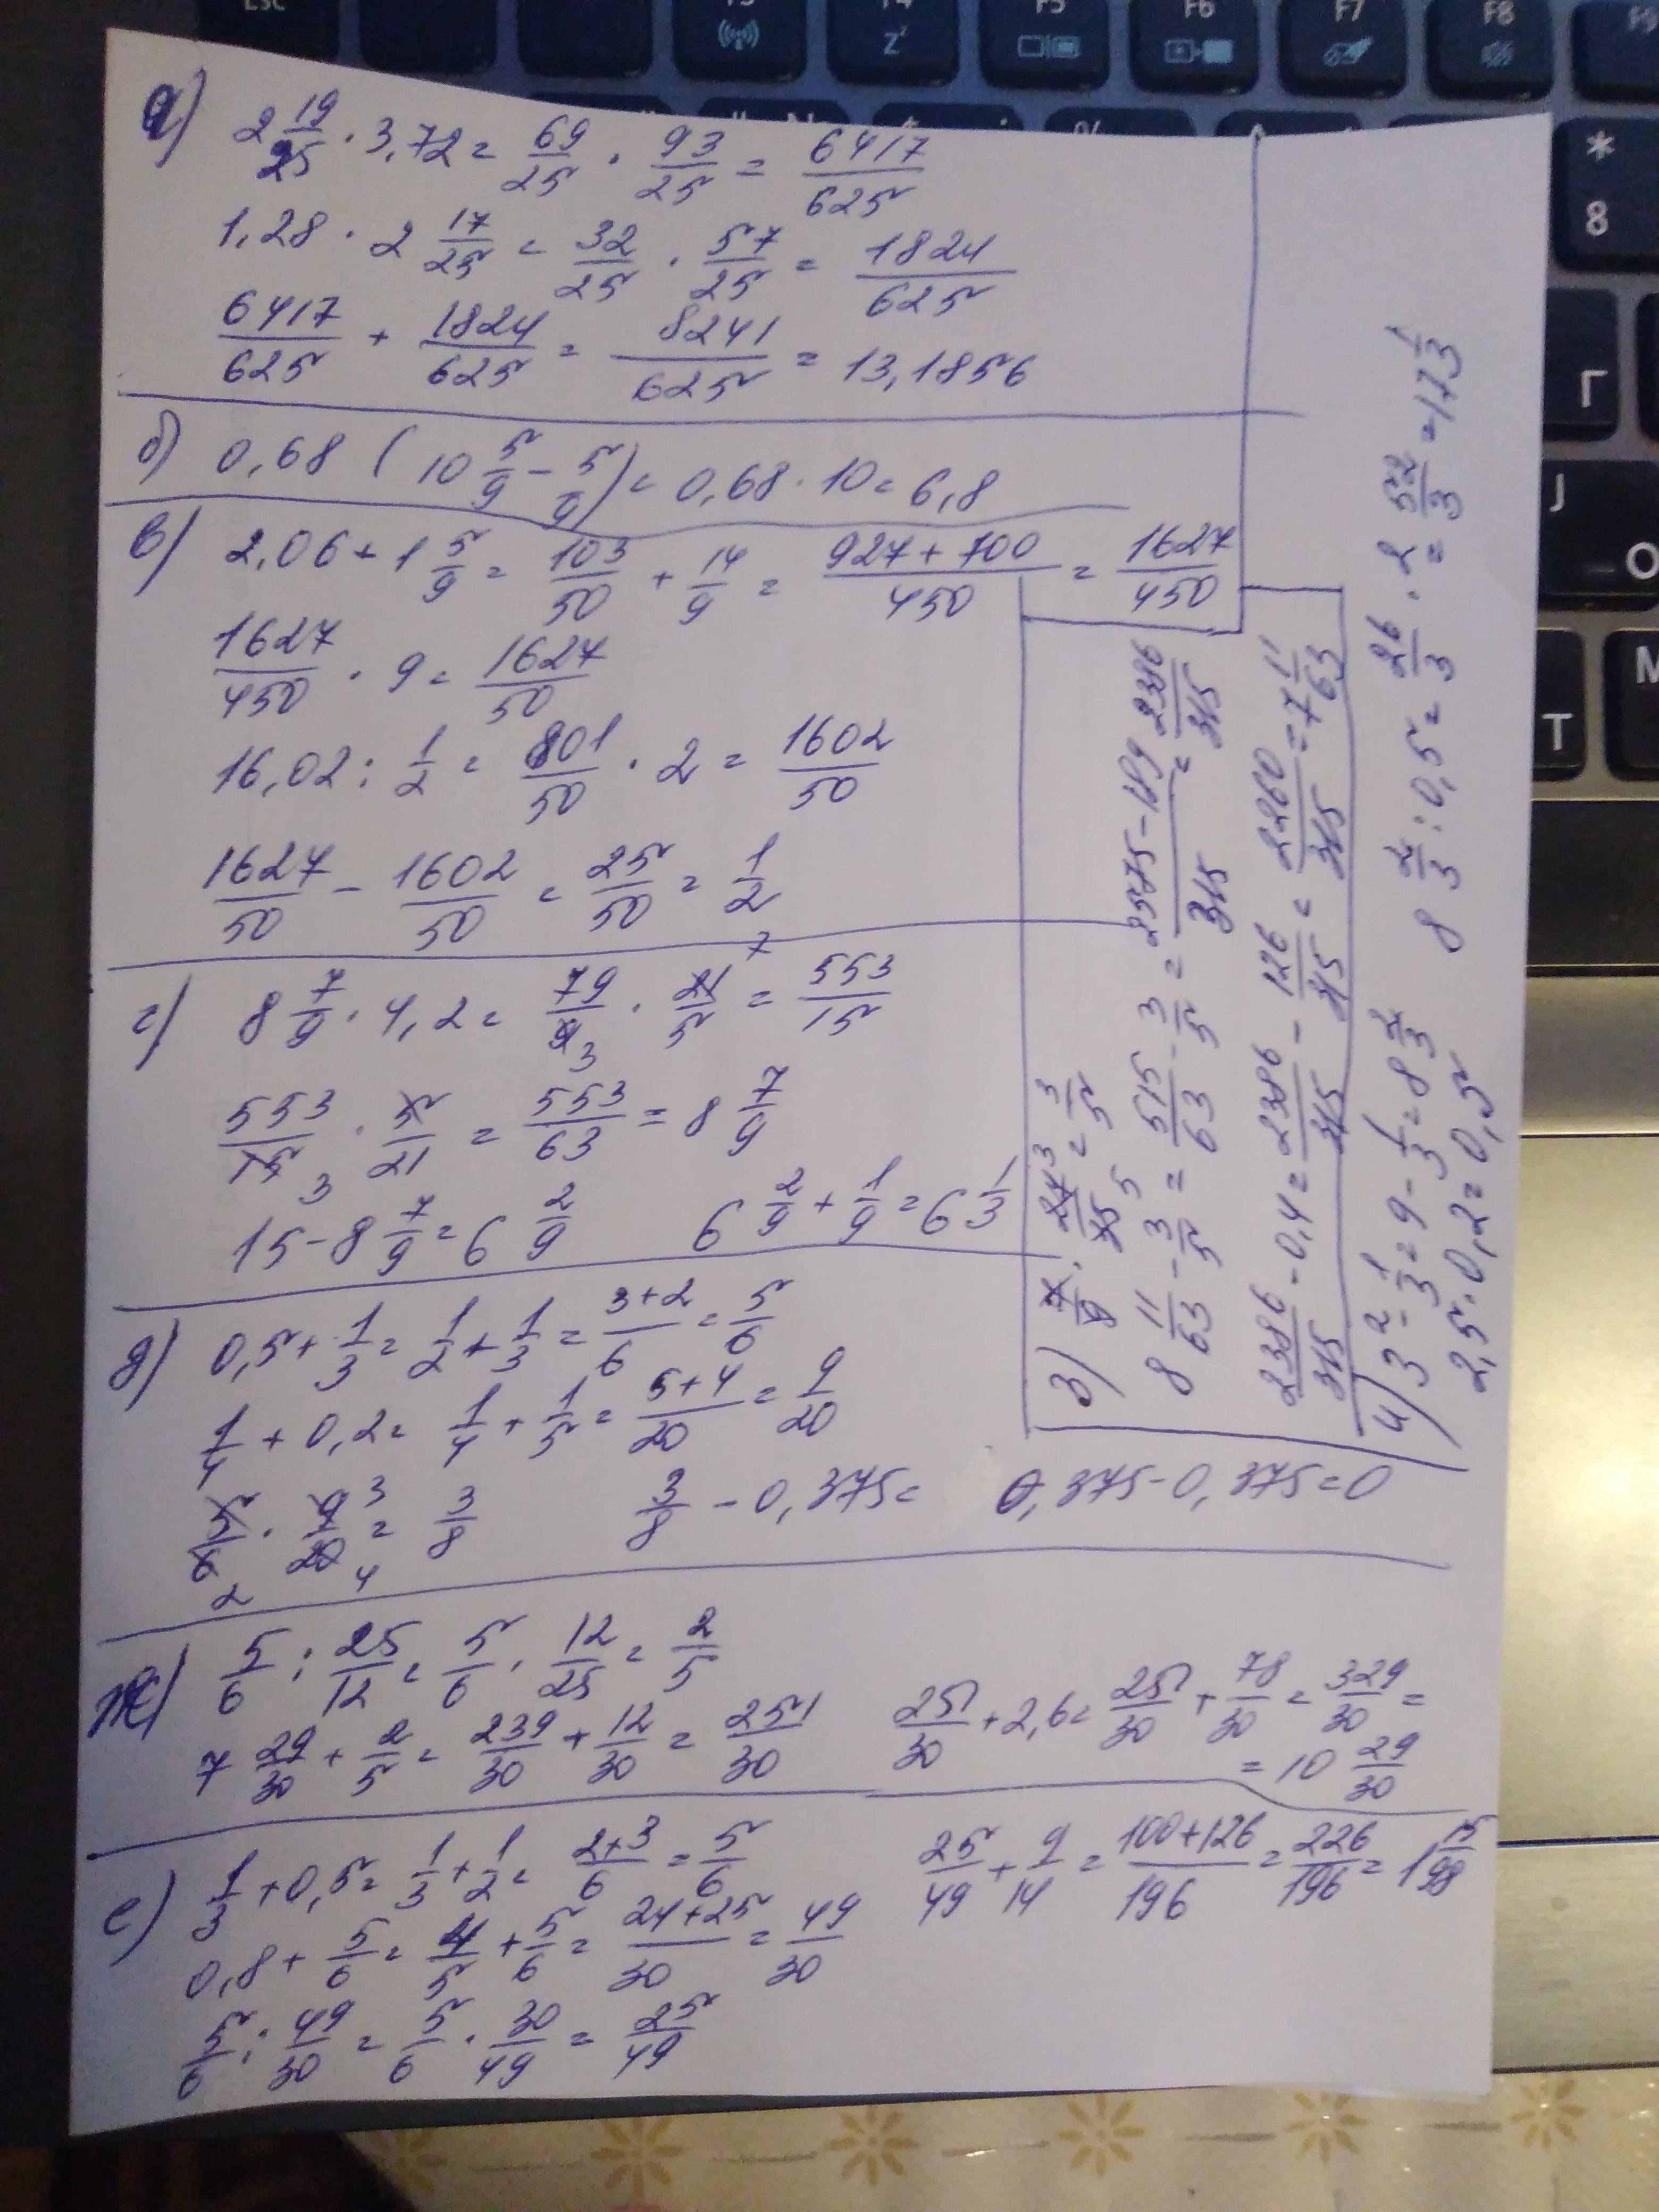 Esc F3 F4 F5 F6 F7 F8 F9
Z
%
*
8
Г
J
О
Т
М
а) 2 19/25 · 3,72 = 69/25 · 93/25 = 6417/625
1,28 · 2 17/25 = 32/25 · 57/25 = 1824/625
6417/625 + 1824/625 = 8241/625 = 13,1856
б) 0,68 ( 10 5/9 - 5/9 ) = 0,68 · 10 = 6,8
в) 2,06 + 1 5/9 = 103/50 + 14/9 = (927 + 700)/450 = 1627/450
1627/450 · 9 = 1627/50
16,02 : 1/2 = 801/50 · 2 = 1602/50
1627/50 - 1602/50 = 25/50 = 1/2
г) 8 7/9 · 4,2 = 79/9 3 · 21/5 7 = 553/15
553/15 3 · 5/21 = 553/63 = 8 7/9
15 - 8 7/9 = 6 2/9 6 2/9 + 1/9 = 6 1/3
д) 0,5 + 1/3 = 1/2 + 1/3 = (3+2)/6 = 5/6
1/4 + 0,2 = 1/4 + 1/5 = (5+4)/20 = 9/20
5/6 2 · 9/20 3 4 = 3/8 3/8 - 0,375 = 0,375 - 0,375 = 0
ж) 5/6 : 25/12 = 5/6 · 12/25 = 2/5
7 29/30 + 2/5 = 239/30 + 12/30 = 251/30 251/30 + 2,6 = 251/30 + 78/30 = 329/30 =
= 10 29/30
е) 1/3 + 0,5 = 1/3 + 1/2 = (2+3)/6 = 5/6 25/49 + 9/14 = (100+126)/196 = 226/196 = 1 15/98
0,8 + 5/6 = 4/5 + 5/6 = (24+25)/30 = 49/30
5/6 : 49/30 = 5/6 · 30/49 = 25/49
з) 7/9 · 27/35 3 5 = 3/5
8 11/63 - 3/5 = 515/63 - 3/5 = (2575 - 189)/315 = 2386/315
2386/315 - 0,4 = 2386/315 - 126/315 = 2260/315 = 7 11/63
и) 3² - 1/3 = 9 - 1/3 = 8 2/3 8 2/3 : 0,5 = 26/3 · 2 = 52/3 = 17 1/3
2,5 · 0,2 = 0,5